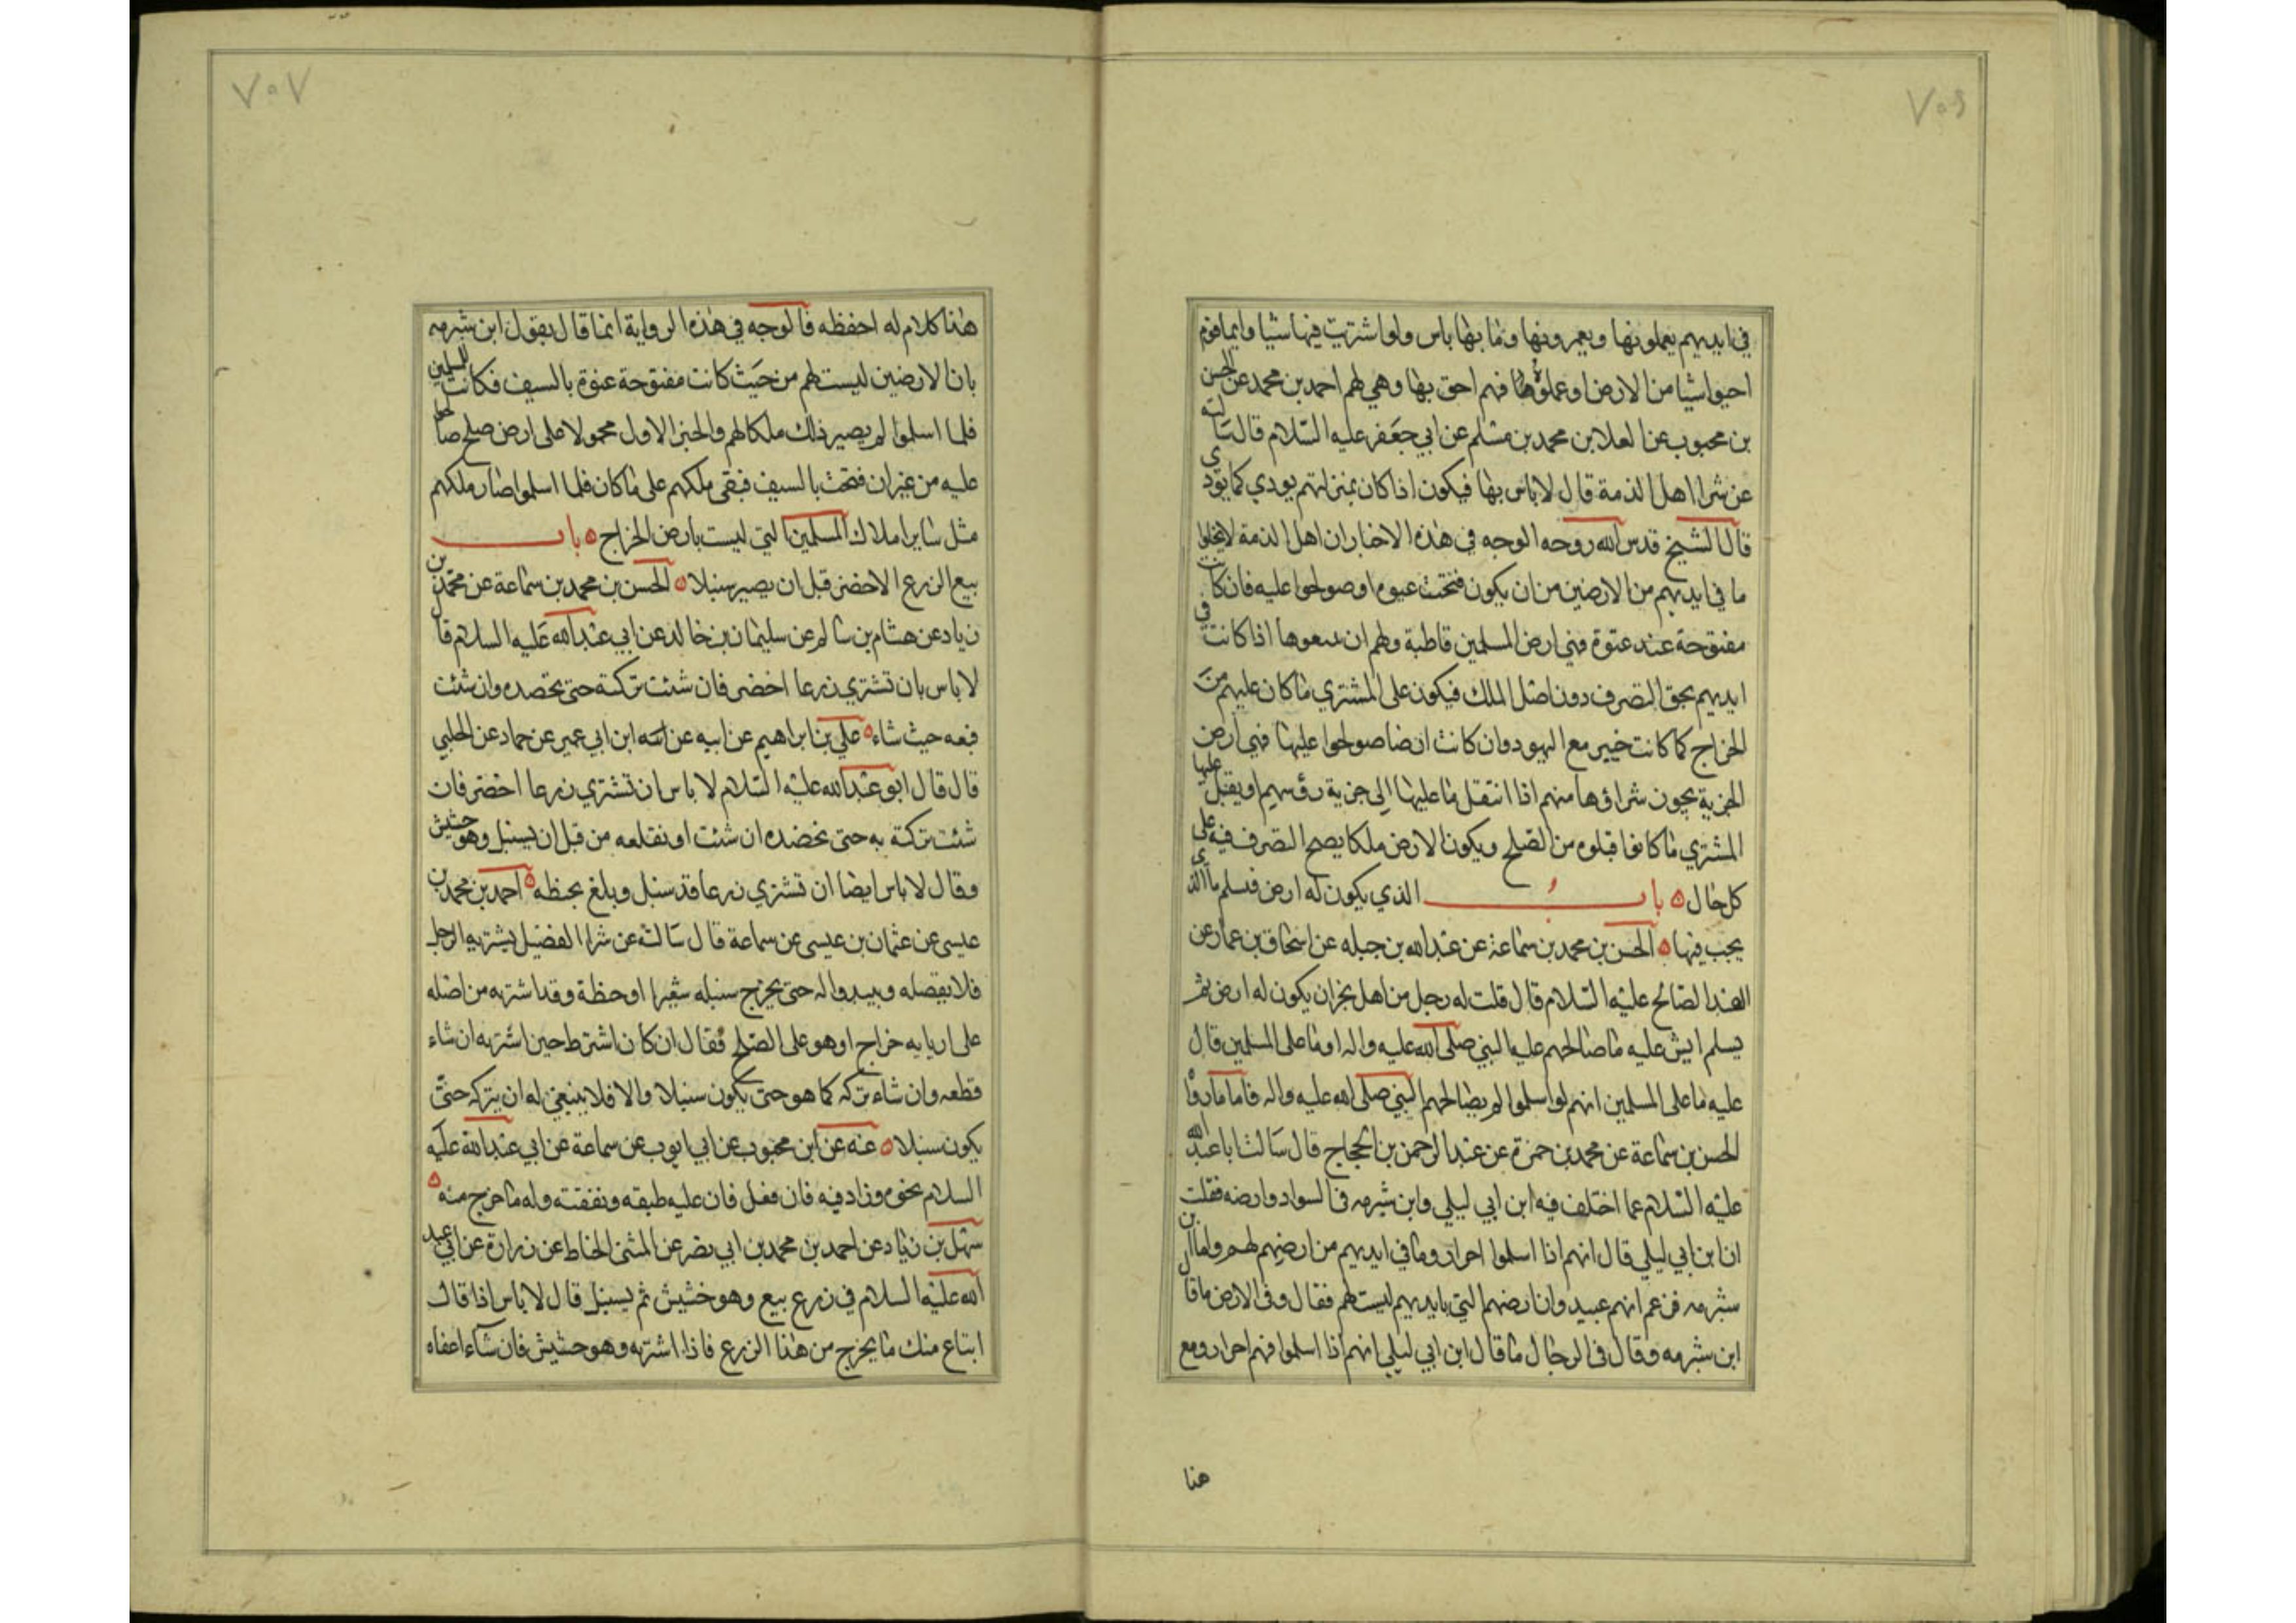 ٧٠٦
في ايديهم يعملونها ويعمرونها وما بها باس ولو اشتريت فيها شيا وايما قوم
احيوا شيا من الارض او عملوها فهم احق بها وهي لهم احمد بن محمد عن الحسن
بن محبوب عن العلا بن محمد بن مسلم عن ابي جعفر عليه السلام قال سالته
عن شرا اهل الذمة قال لا باس بها فيكون اذا كان بمنزلتهم يودي كما يؤدي
قال الشيخ قدس الله روحه الوجه في هذه الاخبار ان اهل الذمة لا يخلوا
ما في ايديهم من الارضين من ان يكون فتحت عنوه او صولحوا عليه فان كانت
مفتوحة عند عنوة فهي ارض المسلمين قاطبة ولهم ان يبيعوها اذا كانت في
ايديهم بحق التصرف دون اصل الملك فيكون على المشتري ما كان عليهم من
الخراج كما كانت خيبر مع اليهود وان كانت ارضا صولحوا عليها فهي ارض
الجزية يجوز شراؤها منهم اذا انتقل ما عليها الى جزية رؤسهم او يقبل عليها
المشتري ما كانوا قبلوه من الصلح ويكون الارض ملكا يصح التصرف فيه على
كل حال ٥ باب الذي يكون له ارض فيسلم ما الذي
يجب فيها ٥ الحسن بن محمد بن سماعة عن عبد الله بن جبله عن اسحاق بن عمار عن
العبد الصالح عليه السلام قال قلت له رجل من اهل نجران يكون له ارض ثم
يسلم ايش عليه ما صالحهم عليه النبي صلى الله عليه واله او ما على المسلمين قال
عليه ما على المسلمين انهم لو اسلموا لم يصالحهم النبي صلى الله عليه واله فاما ما رواه
الحسن بن سماعة عن محمد بن حمزة عن عبد الرحمن بن الحجاج قال سالت ابا عبد الله
عليه السلام عما اختلف فيه ابن ابي ليلي وابن شبرمه في السواد وارضه فقلت
ان ابن ابي ليلي قال انهم اذا اسلموا احرار وما في ايديهم من ارضهم لهم واما ابن
شبرمه فزعم انهم عبيد وان ارضهم التي بايديهم ليست لهم فقال في الارض ما قال
ابن شبرمه وقال في الرجال ما قال ابن ابي ليلي انهم اذا اسلموا فهم احرار ومع
هذا
٧٠٧
هذا كلام له احفظه فالوجه في هذه الرواية انما قال بقول ابن شبرمه
بان الارضين ليست لهم من حيث كانت مفتوحة عنوة بالسيف فكانت للمسلمين
فلما اسلموا لم يصير ذلك ملكا لهم والخبر الاول محمولا على ارض صلح صالحوا
عليه من غير ان فتحت بالسيف فبقى ملكهم على ما كان فلما اسلموا صار ملكهم
مثل ساير املاك المسلمين التي ليست بارض الخراج ٥ باب
بيع الزرع الاخضر قبل ان يصير سنبلا ٥ الحسن بن محمد بن سماعة عن محمد بن
زياد عن هشام بن سالم عن سليمان بن خالد عن ابي عبد الله عليه السلام قال
لا باس بان تشتري زرعا اخضر فان شئت تركته حتى تحصده وان شئت
فبعه حيث شاء ٥ علي بن ابراهيم عن ابيه عن ابن ابي عمير عن حماد عن الحلبي
قال قال ابو عبد الله عليه السلام لا باس ان تشتري زرعا اخضر فان
شئت تركته به حتى تحصده ان شئت او تقلعه من قبل ان يسنبل وهو حشيش
وقال لا باس ايضا ان تشتري زرعا قد سنبل وبلغ بحنطه ٥ احمد بن محمد بن
عيسى عن عثمان بن عيسى عن سماعة قال سالته عن شرا القصيل يشتريه الرجل
فلا يقصله ويبدوا له حتى يخرج سنبله شعيرا او حنطة وقد اشتريه من اصله
على اربابه خراج او هو على الصلح فقال ان كان اشترط حين اشتريه ان شاء
قطعه وان شاء تركه كما هو حتى يكون سنبلا والا فلا ينبغي له ان يتركه حتى
يكون سنبلا ٥ عنه عن ابن محبوب عن ابي ايوب عن سماعة عن ابي عبد الله عليه
السلام نحوه وزاد فيه فان فعل فان عليه طبقه ونفقته وله ما خرج منه ٥
سهل بن زياد عن احمد بن محمد بن ابي نصر عن المثنى الحناط عن زرارة عن ابي عبد
الله عليه السلام في زرع بيع وهو حشيش ثم يسنبل قال لا باس اذا قال
ابتاع منك ما يخرج من هذا الزرع فاذا اشتريه وهو حشيش فان شاء اعفاه